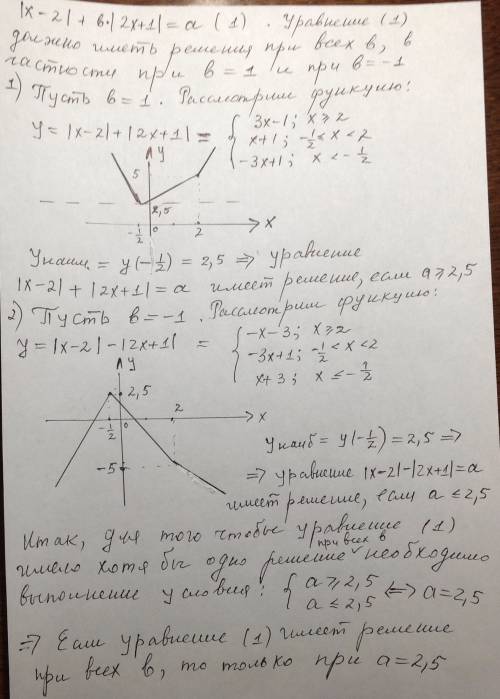 |x-2| + в·|2x+1| = a (1). Уравнение (1)
должно иметь решения при всех в, в
частности при в = 1 и при в = -1
1) Пусть в = 1. Рассмотрим функцию:
y = |x-2| + |2x+1| = { 3x-1; x ≥ 2
x+3; -1/2 < x < 2
-3x+1; x < -1/2
y
5
2,5
-1/2 0 2 x
Унаим. = y(-1/2) = 2,5 => уравнение
|x-2| + |2x+1| = a имеет решение, если a ≥ 2,5
2) Пусть в = -1. Рассмотрим функцию:
y = |x-2| - |2x+1| = { -x-3; x ≥ 2
-3x+1; -1/2 < x < 2
x+3; x ≤ -1/2
y
2,5
-1/2 0 2 x
-5
Унаиб = y(-1/2) = 2,5 =>
=> уравнение |x-2|-|2x+1| = a
имеет решение, если a ≤ 2,5
Итак, для того чтобы уравнение (1)
при всех в
имело хотя бы одно решение необходимо
выполнение условия: { a ≥ 2,5
a ≤ 2,5 <=> a = 2,5
=> Если уравнение (1) имеет решение
при всех в, то только при a = 2,5